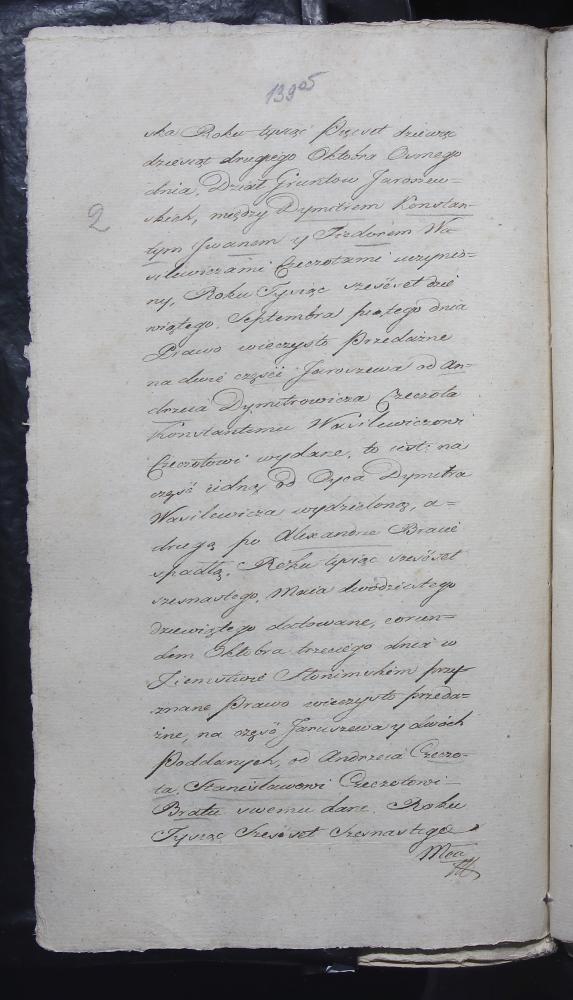 139 05
ska Roku tysiąc Pięcset dziewię
dziesiąt drugiego Oktobra Osmego
dnia. Dział Gruntow Jaroszew-
skich, między Dymitrem Konstan-
2
tym Jwanem y Fiedorem Wa-
silewiczami Czeczotami uczynio-
ny, Roku Tysiąc szesćset dzie
wiątego Septembra piątego dnia
Prawo wieczysto Przedażne
na dwie części Jaroszewa od An-
drzeia Dymitrowicza Czeczota
Konstantemu Wasilewiczowi
Czeczotowi wydane, to iest: na
część iedną od Oyca Dymitra
Wasilewicza wydzieloną, a-
drugą po Alexandrze Bracie
spadłą. Roku tysiąc szesćset
szesnastego Maia dwódziestego
dziewiątego datowane, eorun-
dem Oktobra trzeciego dnia w
Ziemstwie Słonimskim przy-
znane Prawo wieczysto przeda-
żne, na część Jaruszewa y dwóch
Poddanych, od Andrzeia Czeczo-
ta, Stanisławowi Czeczotowi
Bratu swemu dane. Roku
Tysiąc Szesćset Szesnastego
Moa